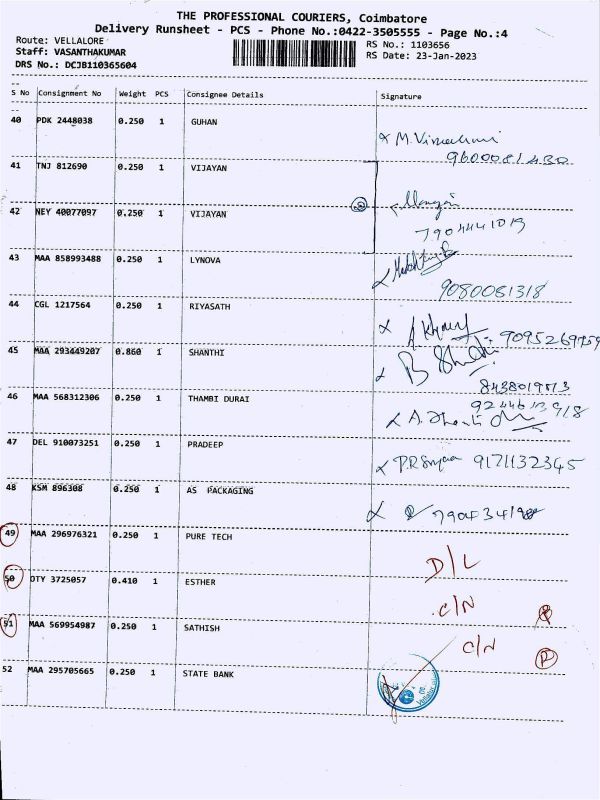 THE PROFESSIONAL COURIERS, Coimbatore
Delivery Runsheet - PCS - Phone No.:0422-3505555 - Page No.:4
Route: VELLALORE
Staff: VASANTHAKUMAR
DRS No.: DCJB110365604
RS No.: 1103656
RS Date: 23-Jan-2023
S No Consignment No Weight PCS Consignee Details Signature
40 PDK 2448038 0.250 1 GUHAN
9600081430
41 TNJ 812690 0.250 1 VIJAYAN
42 NEY 40077097 0.250 1 VIJAYAN
7904441019
43 MAA 858993488 0.250 1 LYNOVA
9080081318
44 CGL 1217564 0.250 1 RIYASATH
9095269959
45 MAA 293449207 0.860 1 SHANTHI
B
8438019513
46 MAA 568312306 0.250 1 THAMBI DURAI
A.
47 DEL 910073251 0.250 1 PRADEEP
9171132345
48 KSM 896308 0.250 1 AS PACKAGING
49 MAA 296976321 0.250 1 PURE TECH D/L
50 OTY 3725057 0.410 1 ESTHER C/N
51 MAA 569954987 0.250 1 SATHISH C/N
52 MAA 295705665 0.250 1 STATE BANK